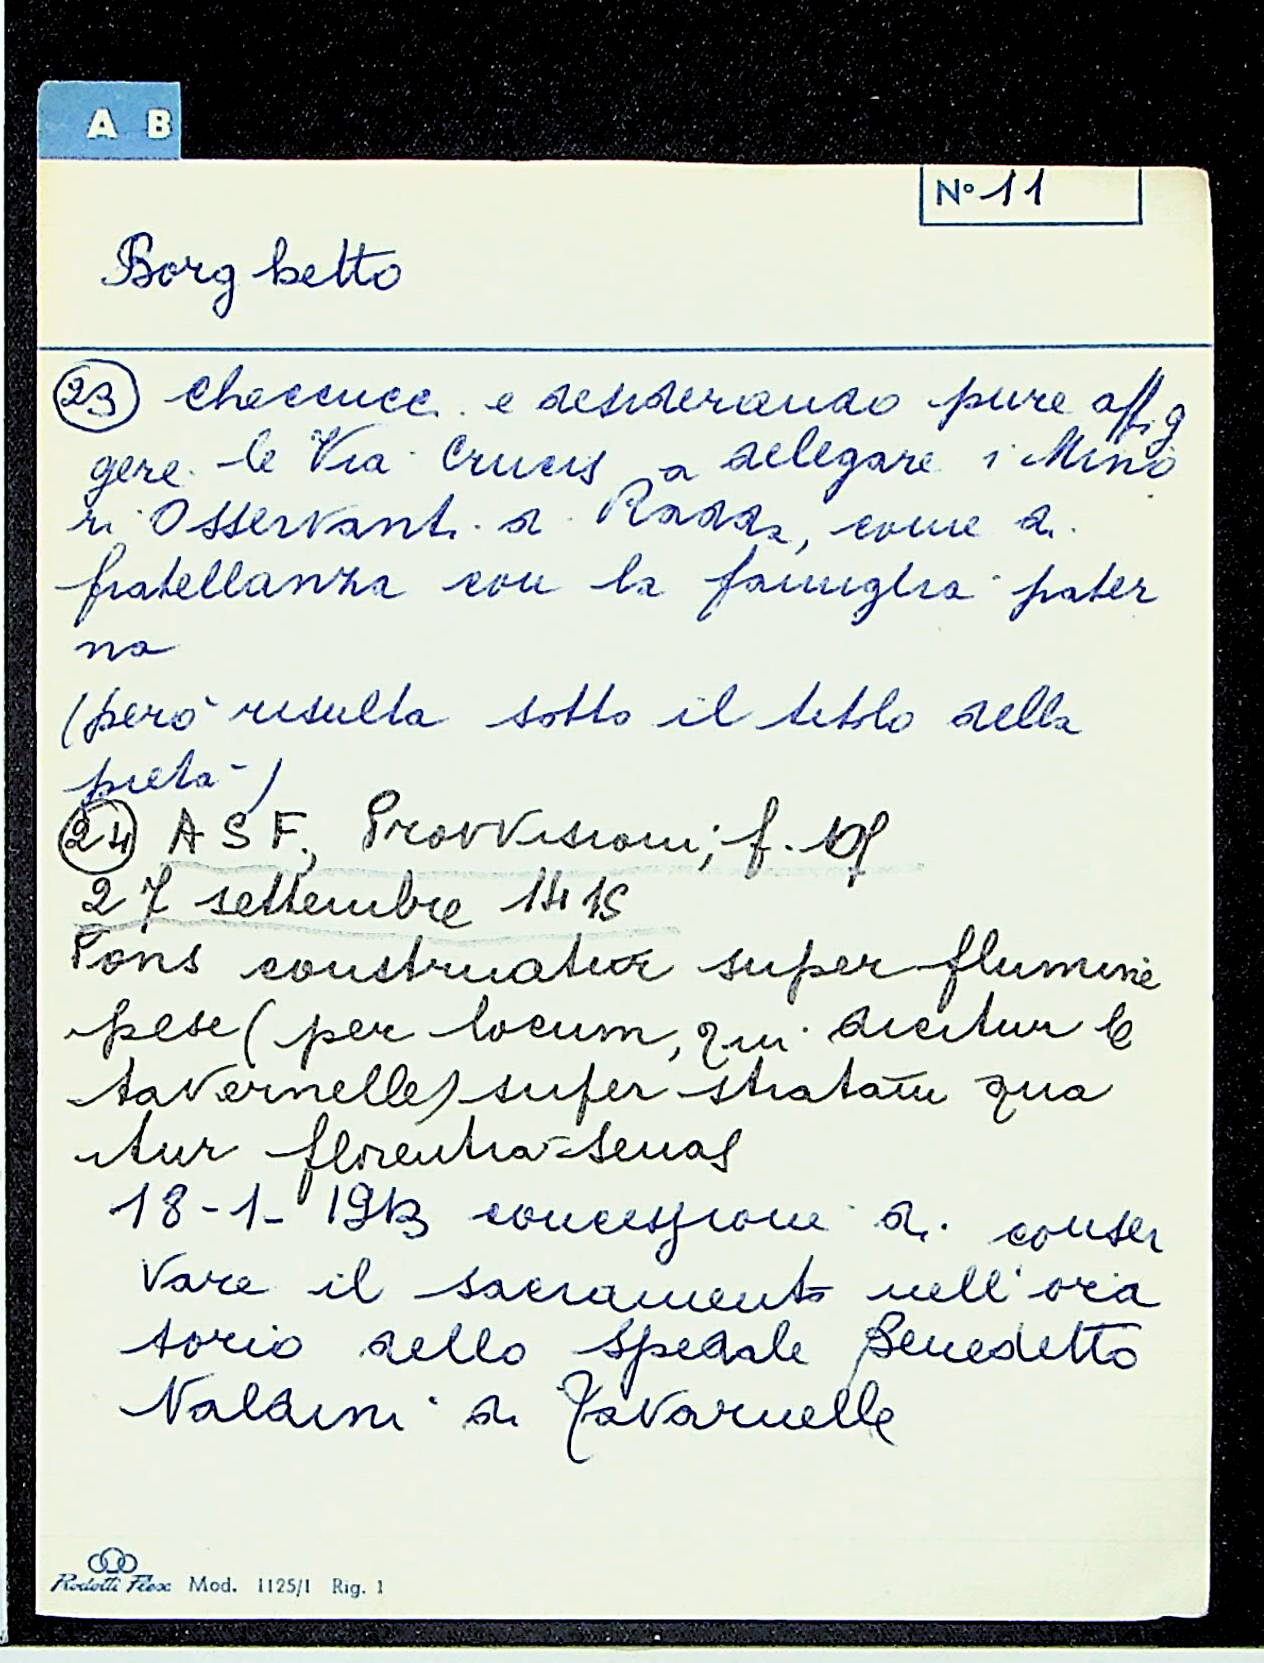 A B
N° 11
Borghetto
(23) Checcucci e desiderando pure affig
gere le Via Crucis a delegare i Mino
ri Osservanti di Radda, come di
fratellanza con la famiglia pater
na
(però risulta sotto il titolo della
pietà)
(24) ASF, Provvisioni, f.
27 settembre 1415
Pons construatur super flumine
pese (per locum, qui dicitur le
tavernelle) super stratam qua
itur florentia=senas
18-1-1913 concessione di conser
vare il sacramento nell'ora
torio dello Spedale Benedetto
Naldini di Tavarnelle
Rodotti Flex Mod. 1125/1 Rig. 1